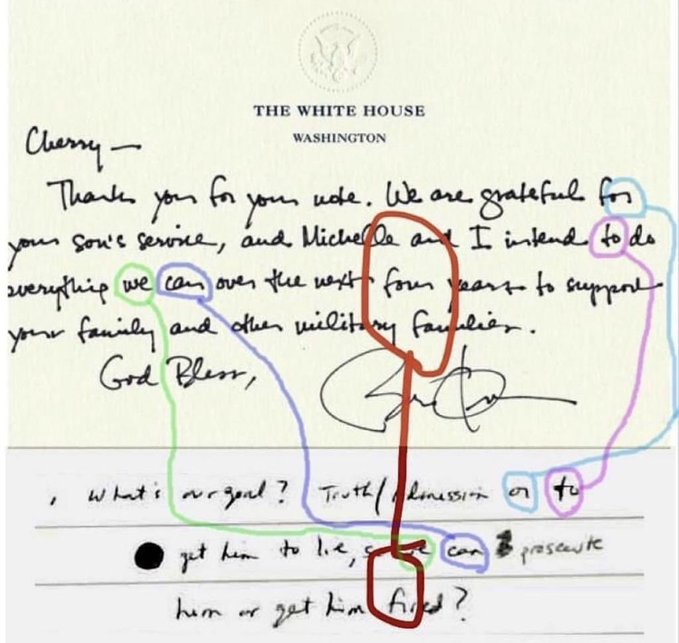 THE WHITE HOUSE
WASHINGTON
Cherry—
Thank you for your note. We are grateful for
your son's service, and Michelle and I intend to do
everything we can over the next four years to support
your family and other military families.
God Bless,
, what's our goal? Truth/Admission or to
get him to lie, so we can prosecute
him or get him fired?